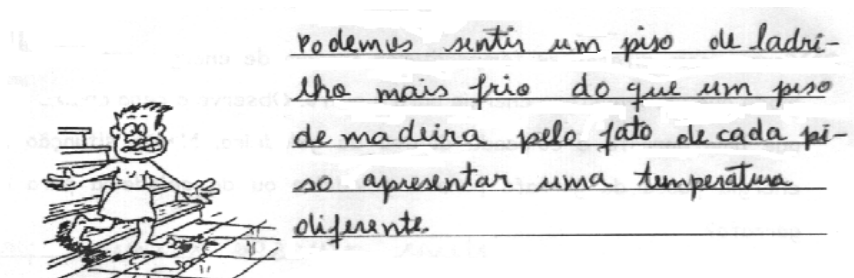 Podemos sentir um piso de ladri-
lho mais frio do que um piso
de madeira pelo fato de cada pi-
so apresentar uma temperatura
diferente.